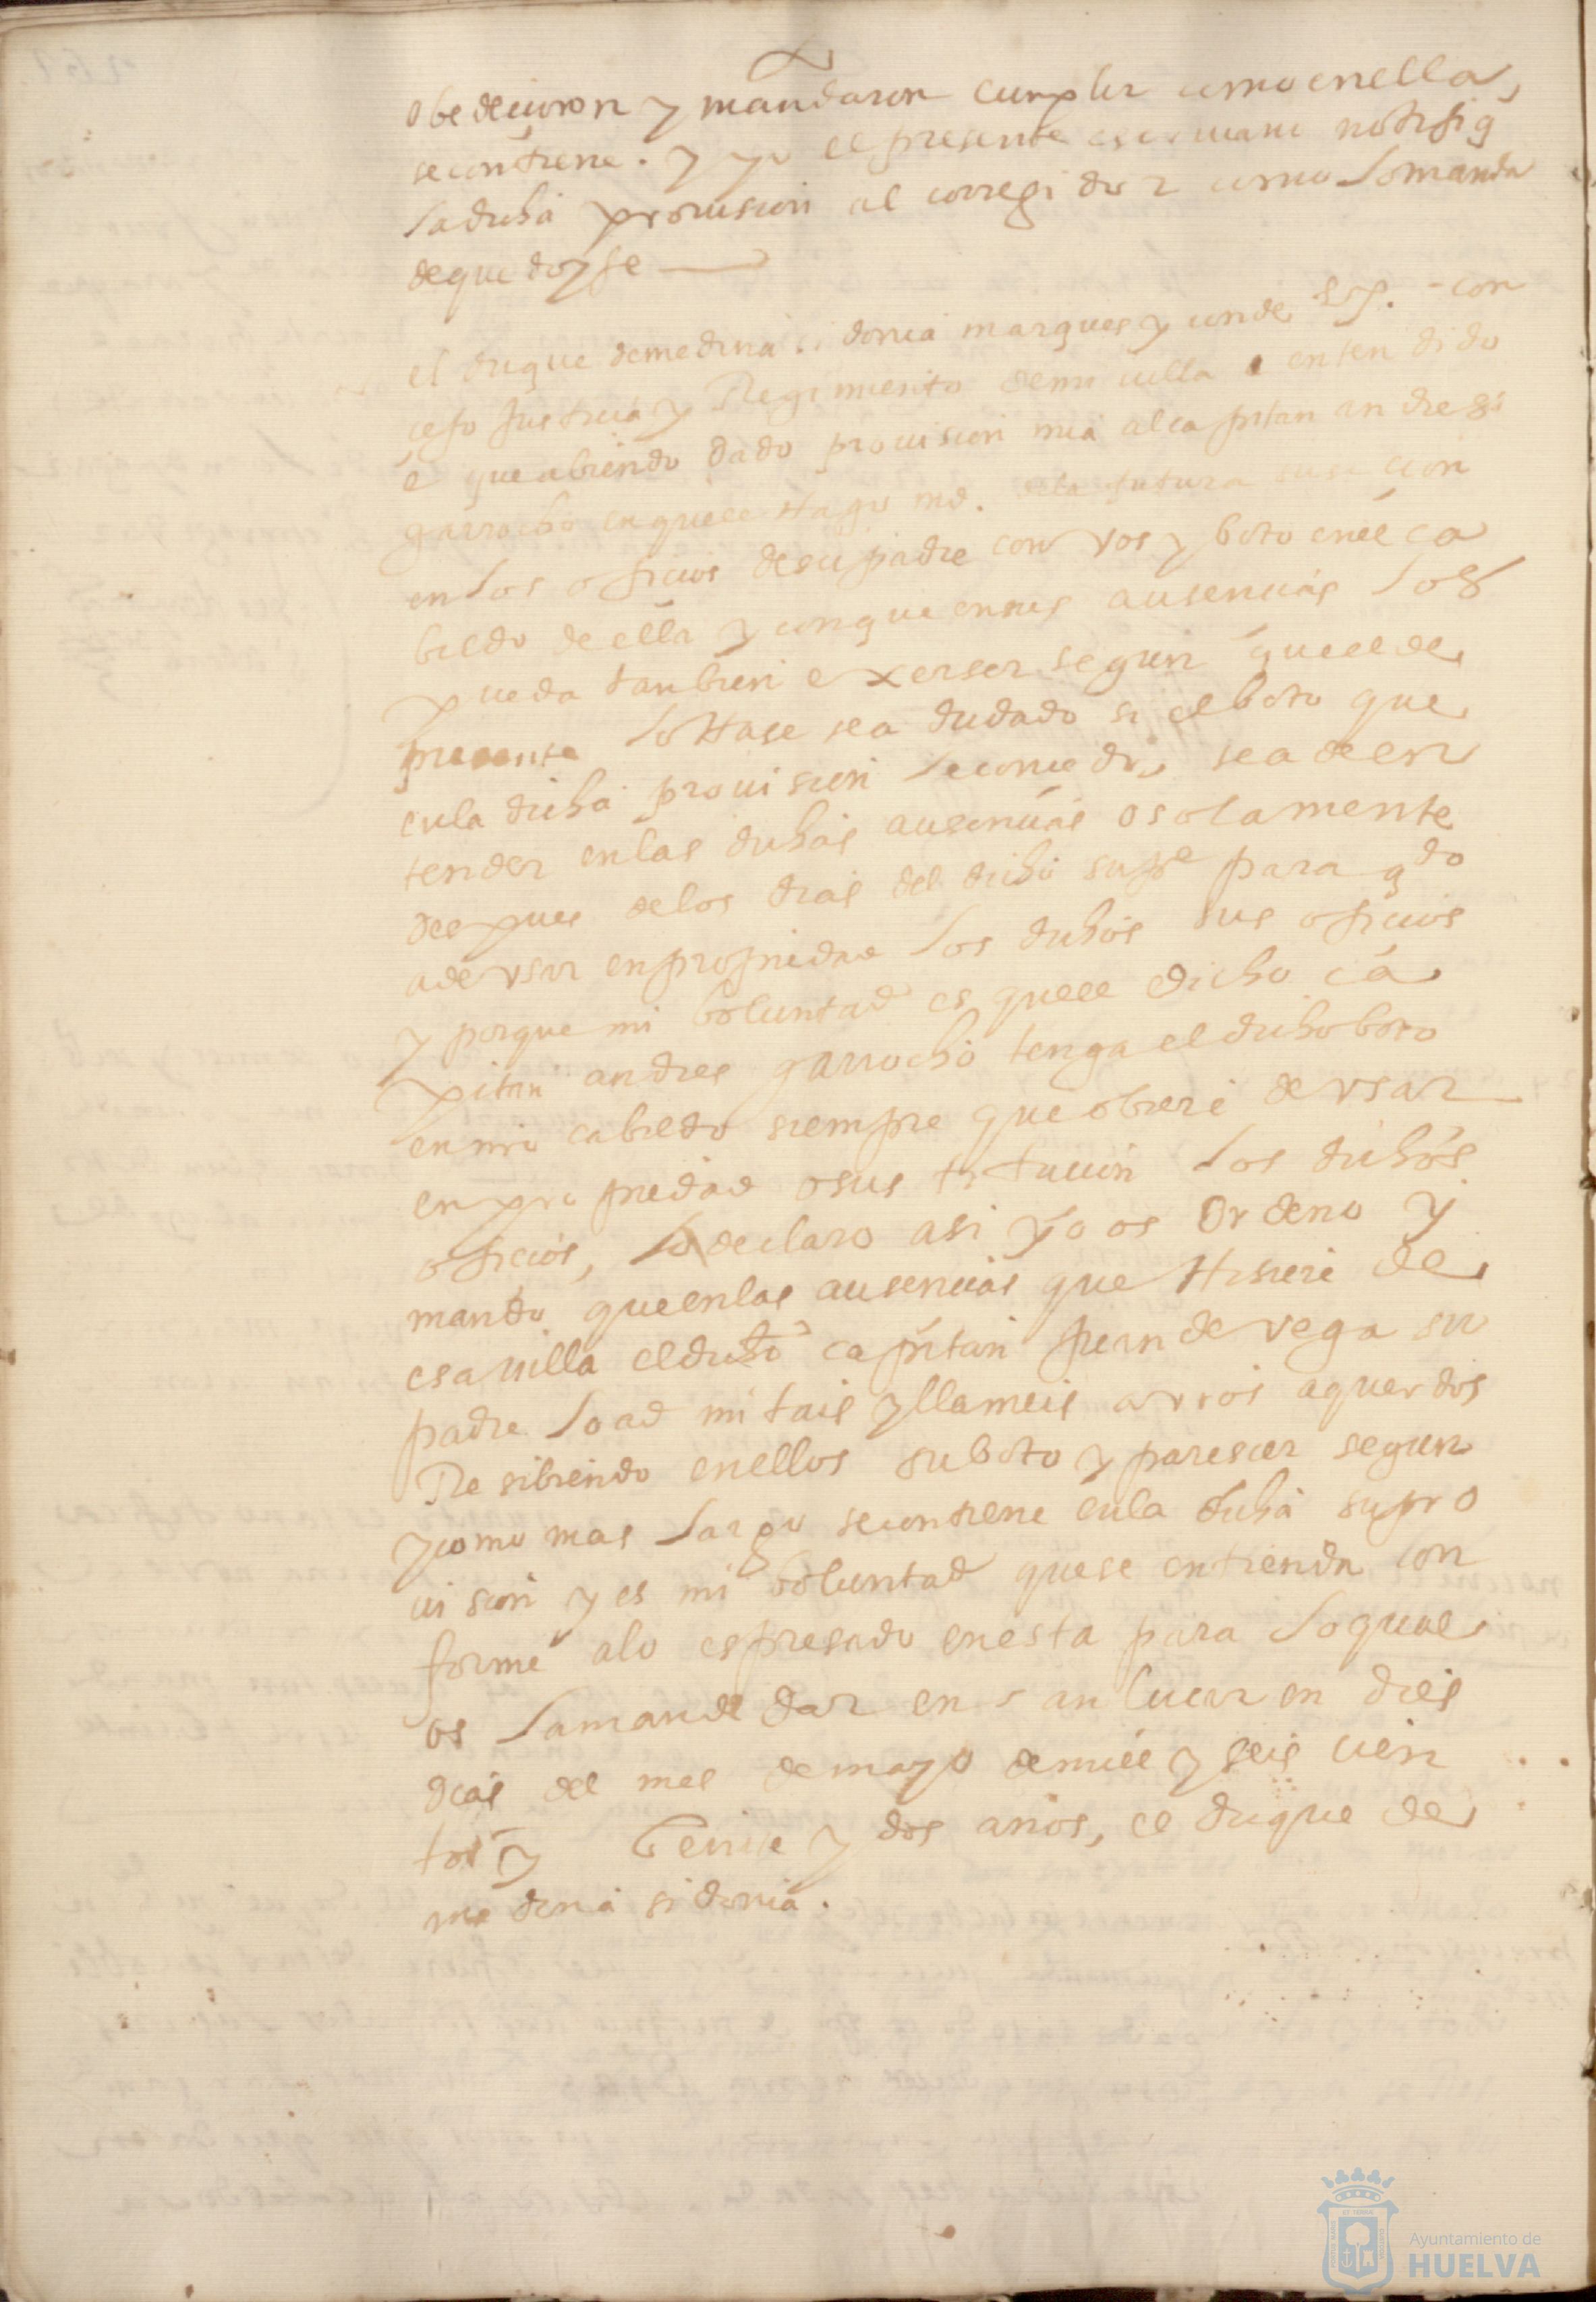 obedecieron y mandaron cumplir como en ella
se contiene. y yo el presente escriuano notifiq
la dicha prouision al corregidor como lo manda
de que doy fe
el duque de medina sidonia marques y conde &. - con
cejo Justicia y Regimiento de mi uilla entendido
e que abiendo dado prouision mia al capitan andres
garrocho en que le Hago md. de la futura susecion
en los oficios de su padre con vos y boto en el ca
bildo de ella y con que en sus ausencias los
pueda tanbien exerser segun que el de
presente lo Hase se a dudado si el boto que
en la dicha prouision le concedo, se a de en
tender en las dichas ausencias o solamente
despues de los dias del dicho su pe para qdo
a de vsar en propiedad los dichos sus oficios
y porque mi boluntad es que el dicho ca
pitan andres garrocho tenga el dicho boto
en mi cabildo siempre que obiere de vsar
en propiedad o sustitucion los dichos
oficios, lo declaro asi y os ordeno y
mando que en las ausencias que Hisiere de
esa uilla el dicho capitan Juan de vega su
padre lo admitais y llameis a vros aquerdos
Resibiendo en ellos su boto y pareser segun
y como mas largo se contiene en la dicha su pro
uision y es mi boluntad que se entienda con
forme a lo espresado en esta para lo qual
os la mande dar en san lucar en dies
dias del mes de mayo de mill y seis cien
tos y beinte y dos años, el duque de
medina sidonia.
Ayuntamiento de
HUELVA